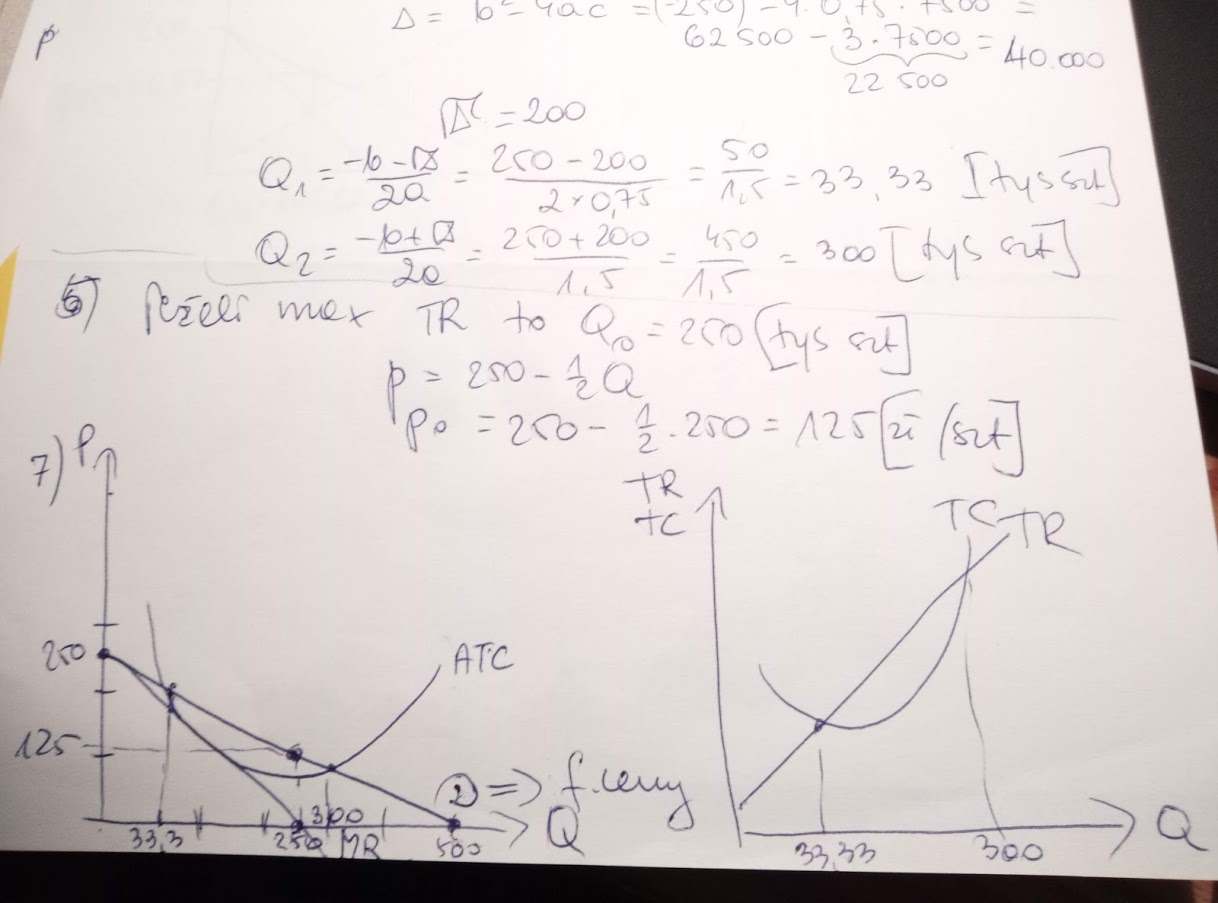 p
Δ = b² - 4ac = (-250) - 4·0,75·7500 =
62 500 - 3·7500 = 40.000
22 500
√Δ = 200
Q₁ = -b-√Δ / 2a = 250 - 200 / 2×0,75 = 50 / 1,5 = 33,33 [tys szt]
Q₂ = -b+√Δ / 2a = 250 + 200 / 1,5 = 450 / 1,5 = 300 [tys szt]
6) Jeżeli max TR to Q₀ = 250 [tys szt]
p = 250 - 1/2 Q
p₀ = 250 - 1/2 · 250 = 125 [zł/szt]
7) P
250
125
ATC
33,3
250
300
MR
500
Q
D => f. ceny
TR
TC
TC TR
33,33
300
Q